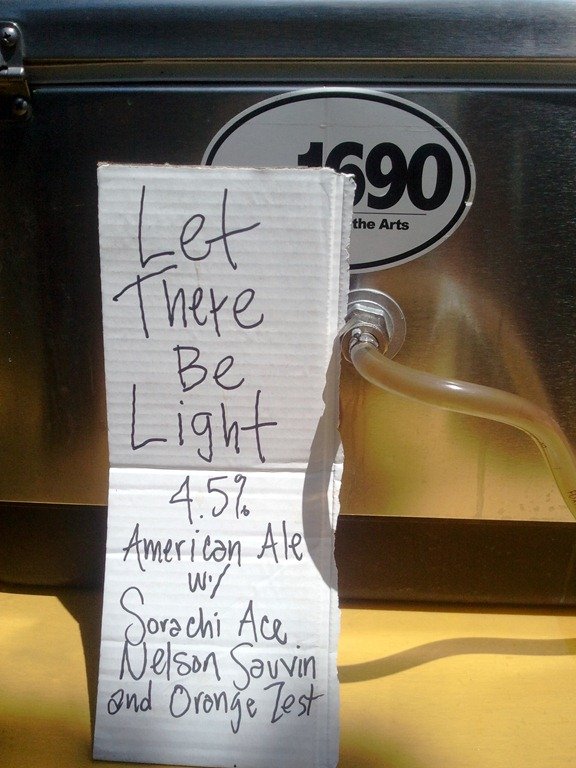 1690
the Arts
Let
There
Be
Light
4.5%
American Ale
w/
Sorachi Ace
Nelson Sauvin
and Orange Zest